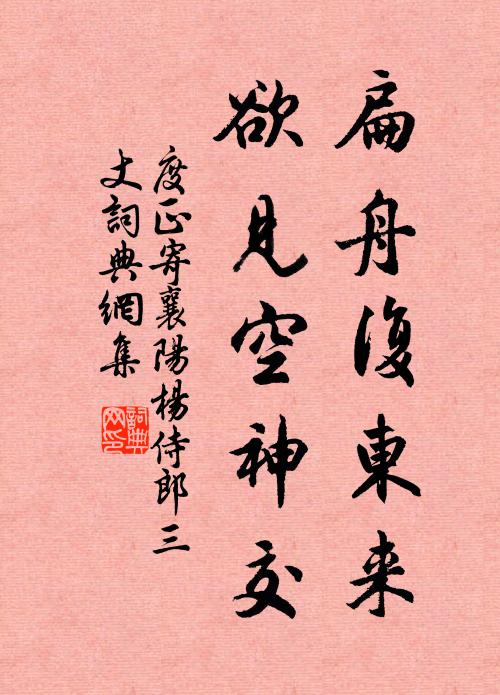 扁舟復東来
欲見空神交
度正寄襄陽楊侍郎三
丈詞典網集
詞典
网印